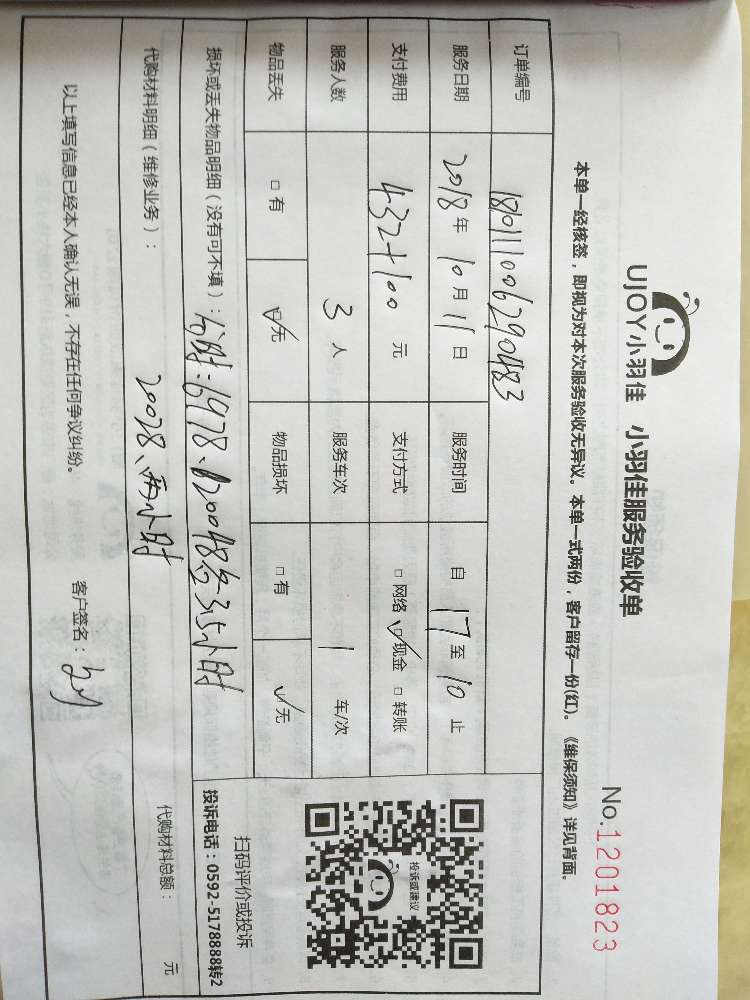 UJOY小羽佳 小羽佳服务验收单
No.1201823
本单一经核签，即视为对本次服务验收无异议。本单一式两份，客户留存一份(红)。《维保须知》详见背面。
订单编号 180111006290483
服务日期 2018年10月11日 服务时间 自17至10止
支付费用 432+100元 支付方式 □网络 ☑现金 □转账
服务人数 3人 服务车次 1车/次
物品丢失 □有 ☑无 物品损坏 □有 ☑无
损坏或丢失物品明细（没有可不填）：
代购材料明细（维修业务）： 代购材料总额： 元
两小时
以上填写信息已经本人确认无误，不存在任何争议纠纷。 客户签名：
投诉或建议
扫码评价或投诉
投诉电话：0592-5178888转2